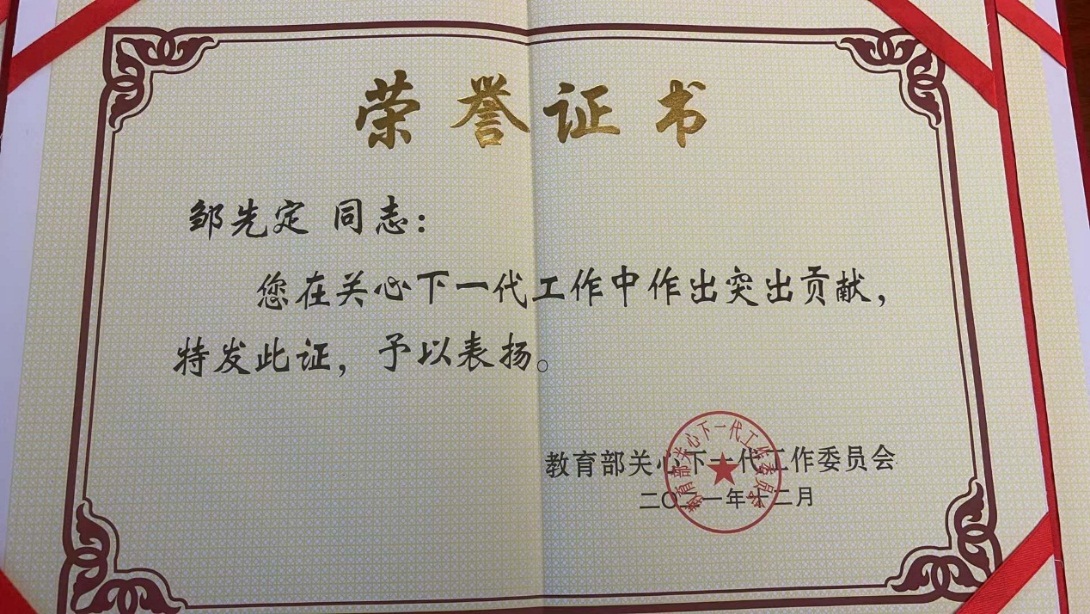 荣誉证书
邹先定 同志：
您在关心下一代工作中作出突出贡献，
特发此证，予以表扬。
教育部关心下一代工作委员会
二〇二一年十二月
教育部关心下一代工作委员会